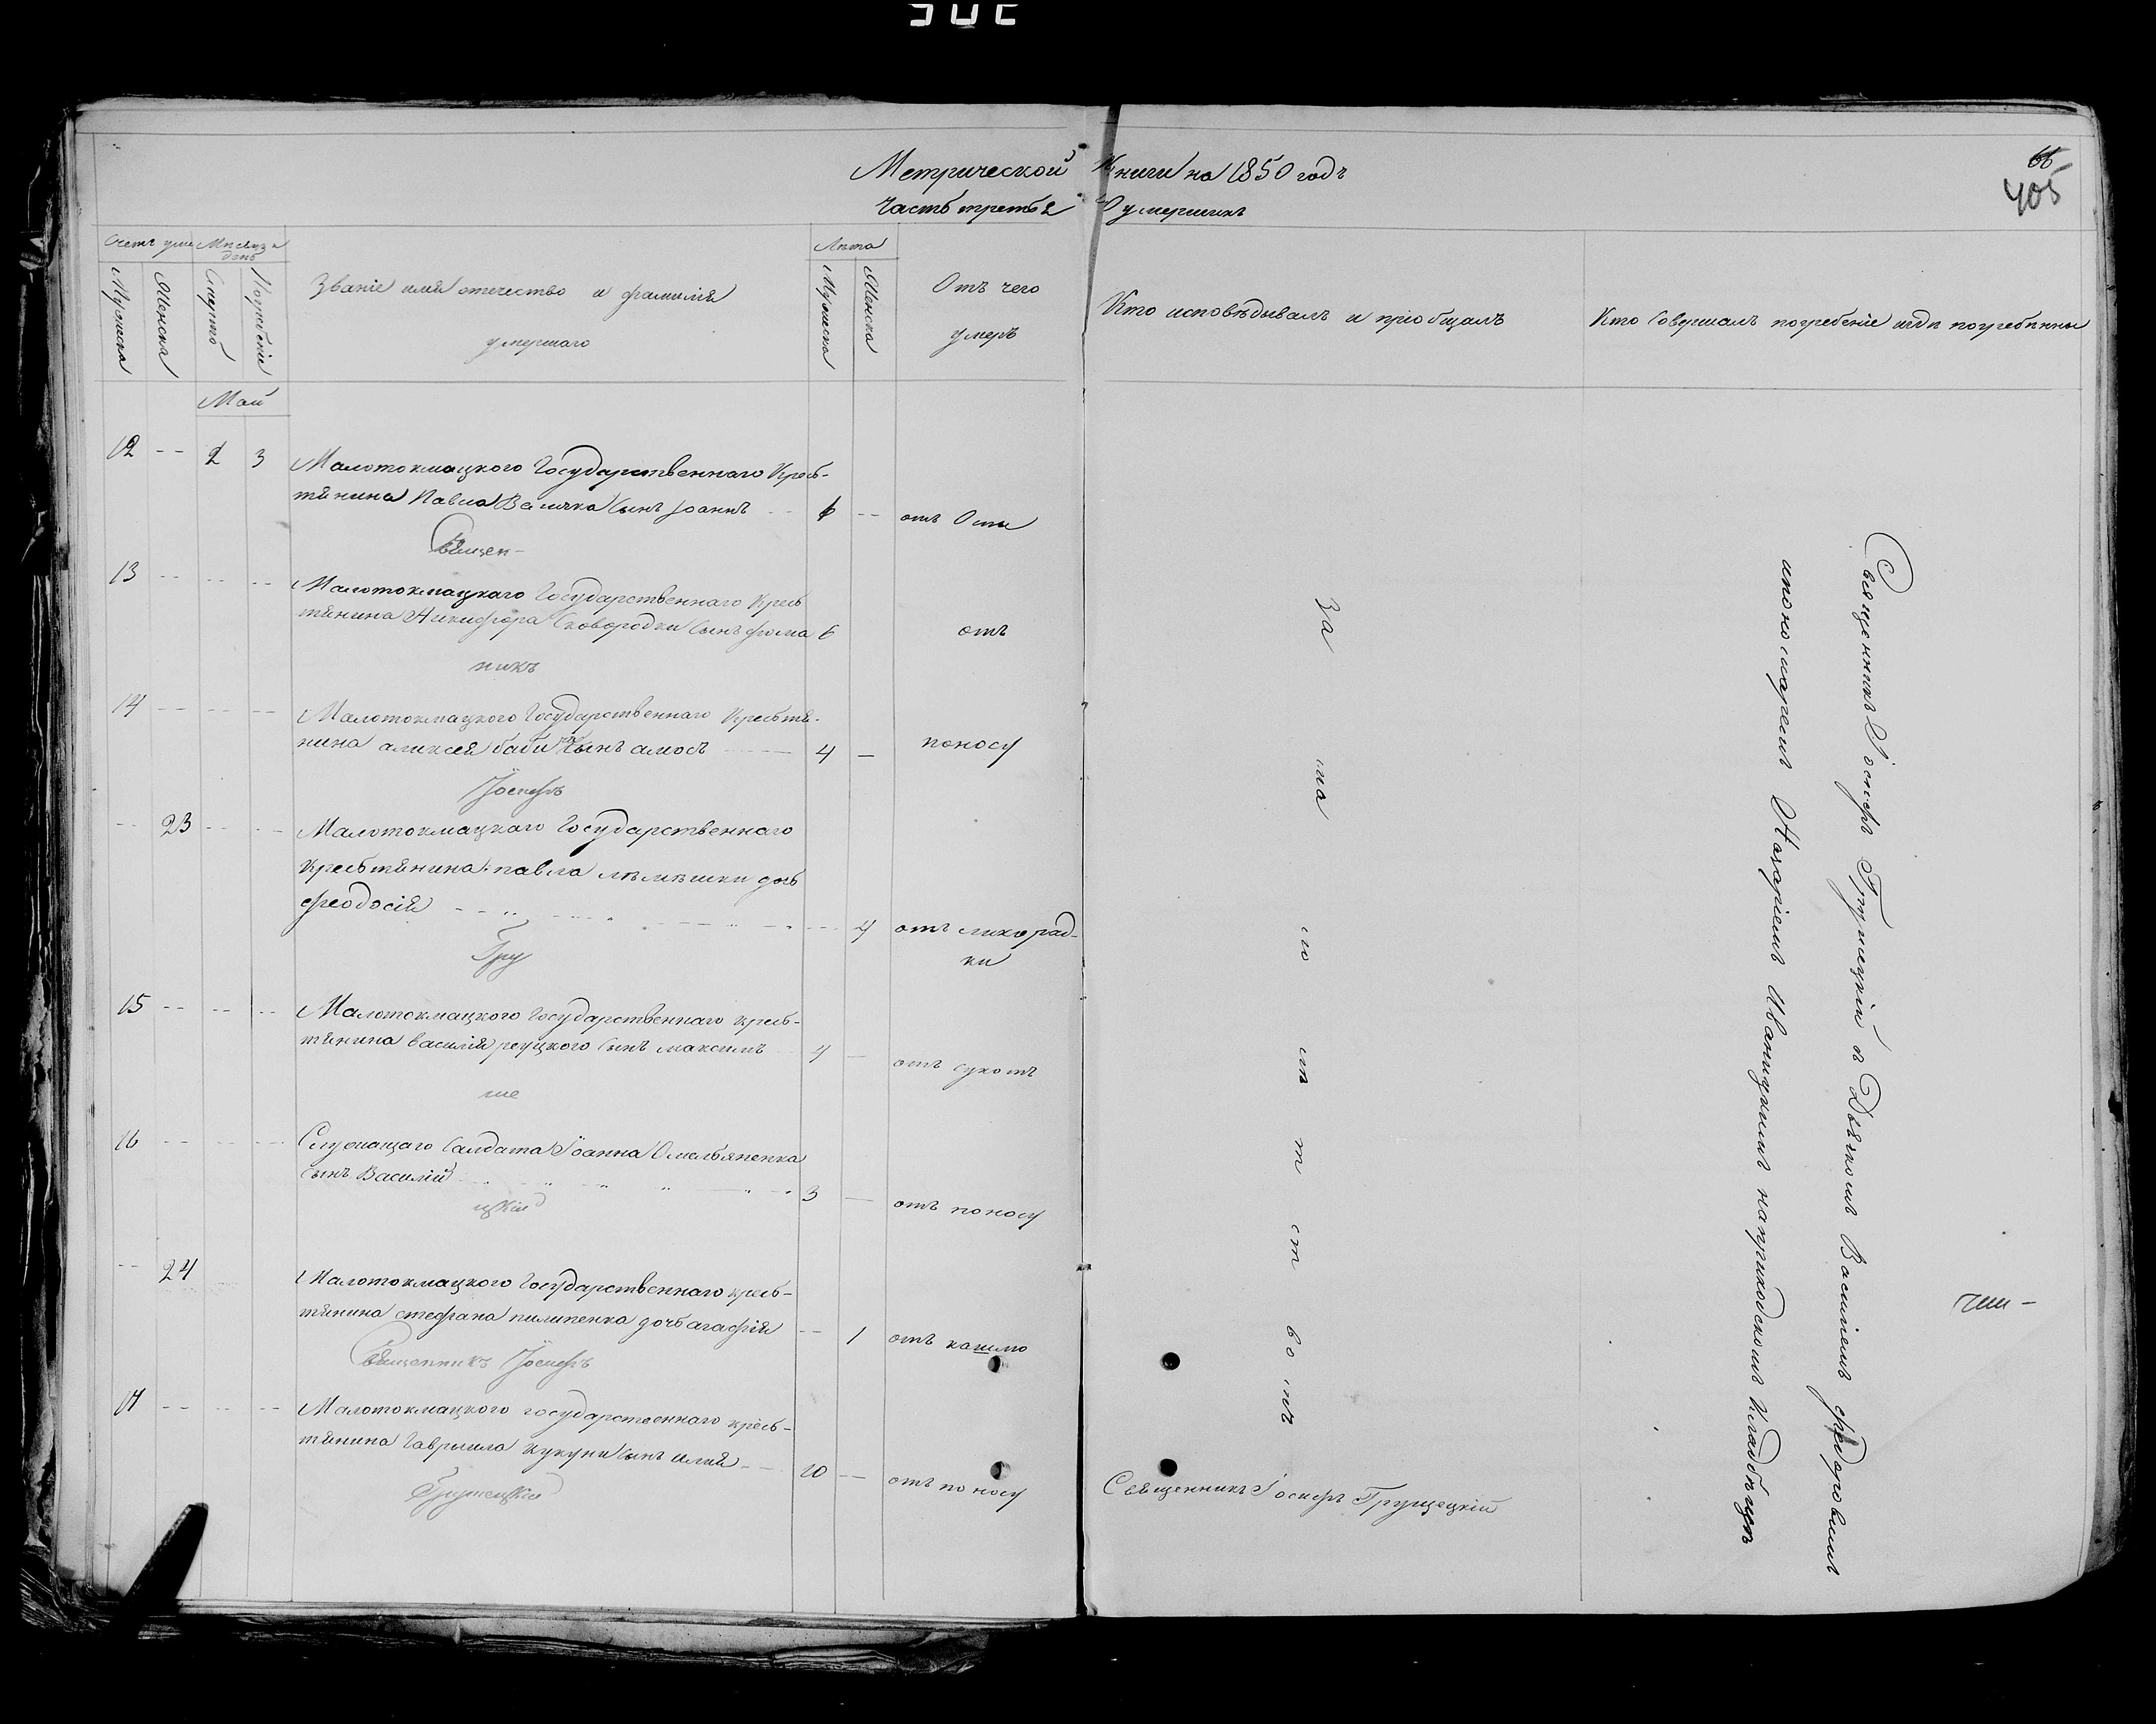 Метрической Книги на 1850 годъ
66
405
Часть третья О умершихъ
Счетъ уме Мисяцъ и день
Мужеска
Женска
Смерть
Погребеніе
Званіе имя отечество и фамилія
умершаго
Лѣта
Мужеска
Женска
Отъ чего
умеръ
Кто исповѣдывалъ и пріобщалъ
Кто Совершалъ погребеніе игдѣ погребѣнны
Май
12 -- 2 3 Малотокмацкого Государственнаго Крес-
тянина Павла Велички Сынъ Іоаннъ 6 -- отъ Оспы
Священ-
13 -- -- -- Малотокмацкаго Государственнаго Крес
тянина Никифора Сковородки Сынъ фома 6 отъ
никъ
14 -- -- -- Малотокмацкого Государственнаго Крестя-
нина аликсея баби Сынъ амосъ 4 — поносу
Іосифъ
-- 23 -- -- Малотокмацкаго Государственнаго
Крестянина павла лѣмѣшки дочь
феодосія 4 отъ лихорад-
ки
Гру
15 -- -- -- Малотокмацкого Государственнаго крес-
тянина василія реуцкого Сынъ максимъ 4 — отъ сухотъ
ше
16 -- -- -- Служащаго Салдата Іоанна Омельяненка
Сынъ Василій 3 — отъ поносу
цкій
-- 24 Малотокмацкого Государственнаго крес-
тянина стефана пилипенка дочь агафія -- 1 отъ кашлю
Священникъ Іосифъ
17 -- -- -- Малотокмацкого государственнаго крес-
тянина Гаврыила кукуни Сынъ илия 10 — отъ поносу
Грушецкій
за ма ло лѣ т ст во мъ
Священникъ Іосифъ Грушецкій
Священникъ Іосифъ Грушецкій съ Дьячкомъ Василіемъ
ипономаремъ Назаріемъ Иваницкимъ наприходскомъ Кладбѣщѣ